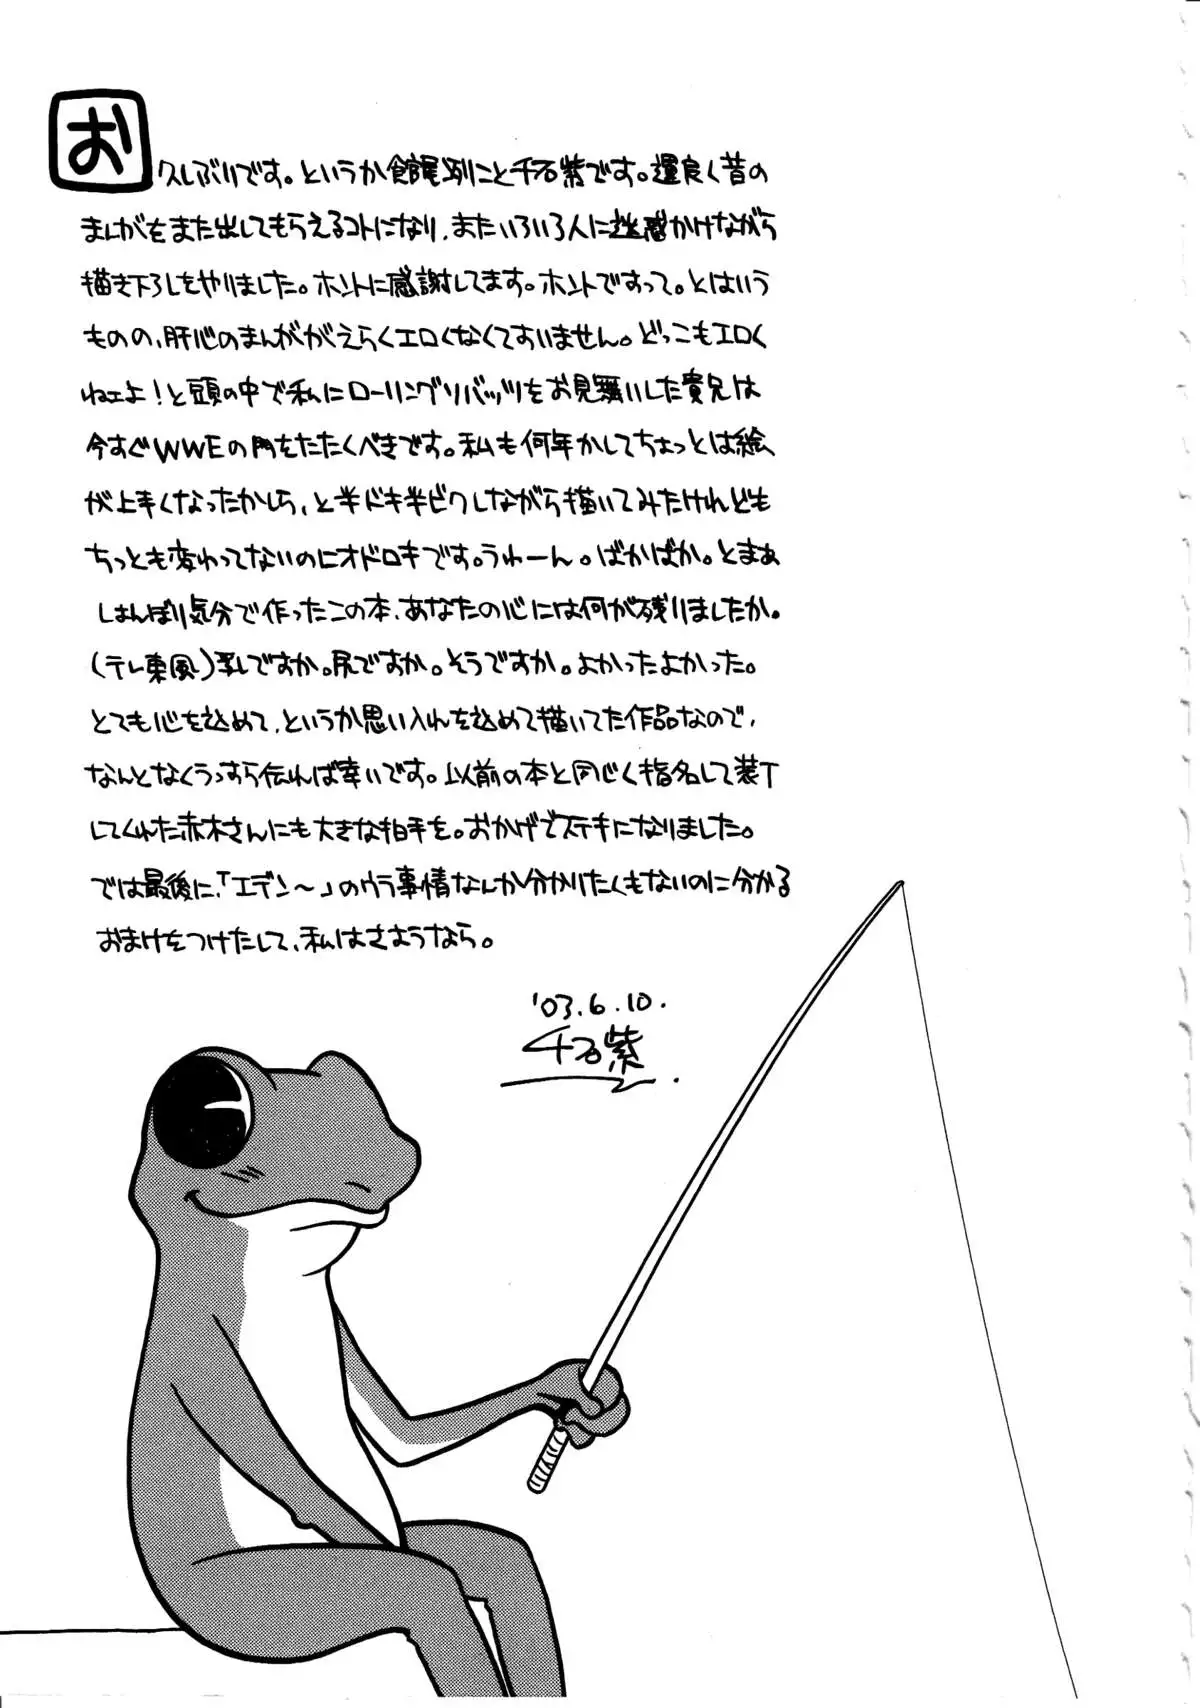 お久しぶりです。というか館尾冽こと千石紫です。運良く昔の
まんがをまた出してもらえるコトになり、またいろいろ人に迷惑かけながら
描き下ろしをやりました。ホントに感謝してます。ホントですって。とはいう
ものの、肝心のまんががえらくエロくなくてすいません。どっこもエロく
ねェよ!と頭の中で私にローリングソバットをお見舞いした貴兄は
今すぐWWEの門をたたくべきです。私も何年かしてちょっとは絵
が上手くなったかしら、と半ドキ半ビクしながら描いてみたけれども
ちっとも変わってないのにオドロキです。うわーん。ばかばか。とまあ
しょんぼり気分で作ったこの本、あなたの心には何が残りましたか。
(テレ東風)乳ですか。尻ですか。そうですか。よかったよかった。
とても心を込めて、というか思い入れを込めて描いてた作品なので、
なんとなくうっすら伝われば幸いです。以前の本と同じく指名して装丁
してくれた赤木さんにも大きな拍手を。おかげでステキになりました。
では最後に、「エデン〜」のウラ事情なんか分かりたくもないのに分かる
おまけをつけたして、私はさようなら。
'03.6.10.
千石紫.